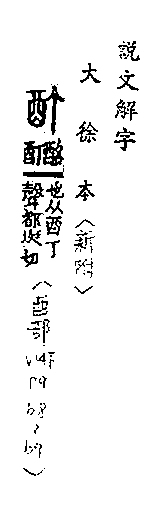 說文解字
大徐本〈新附〉
酊
酩酊
也从酉丁
聲都挺切
(酉部 V14下 P9 b8~b9)